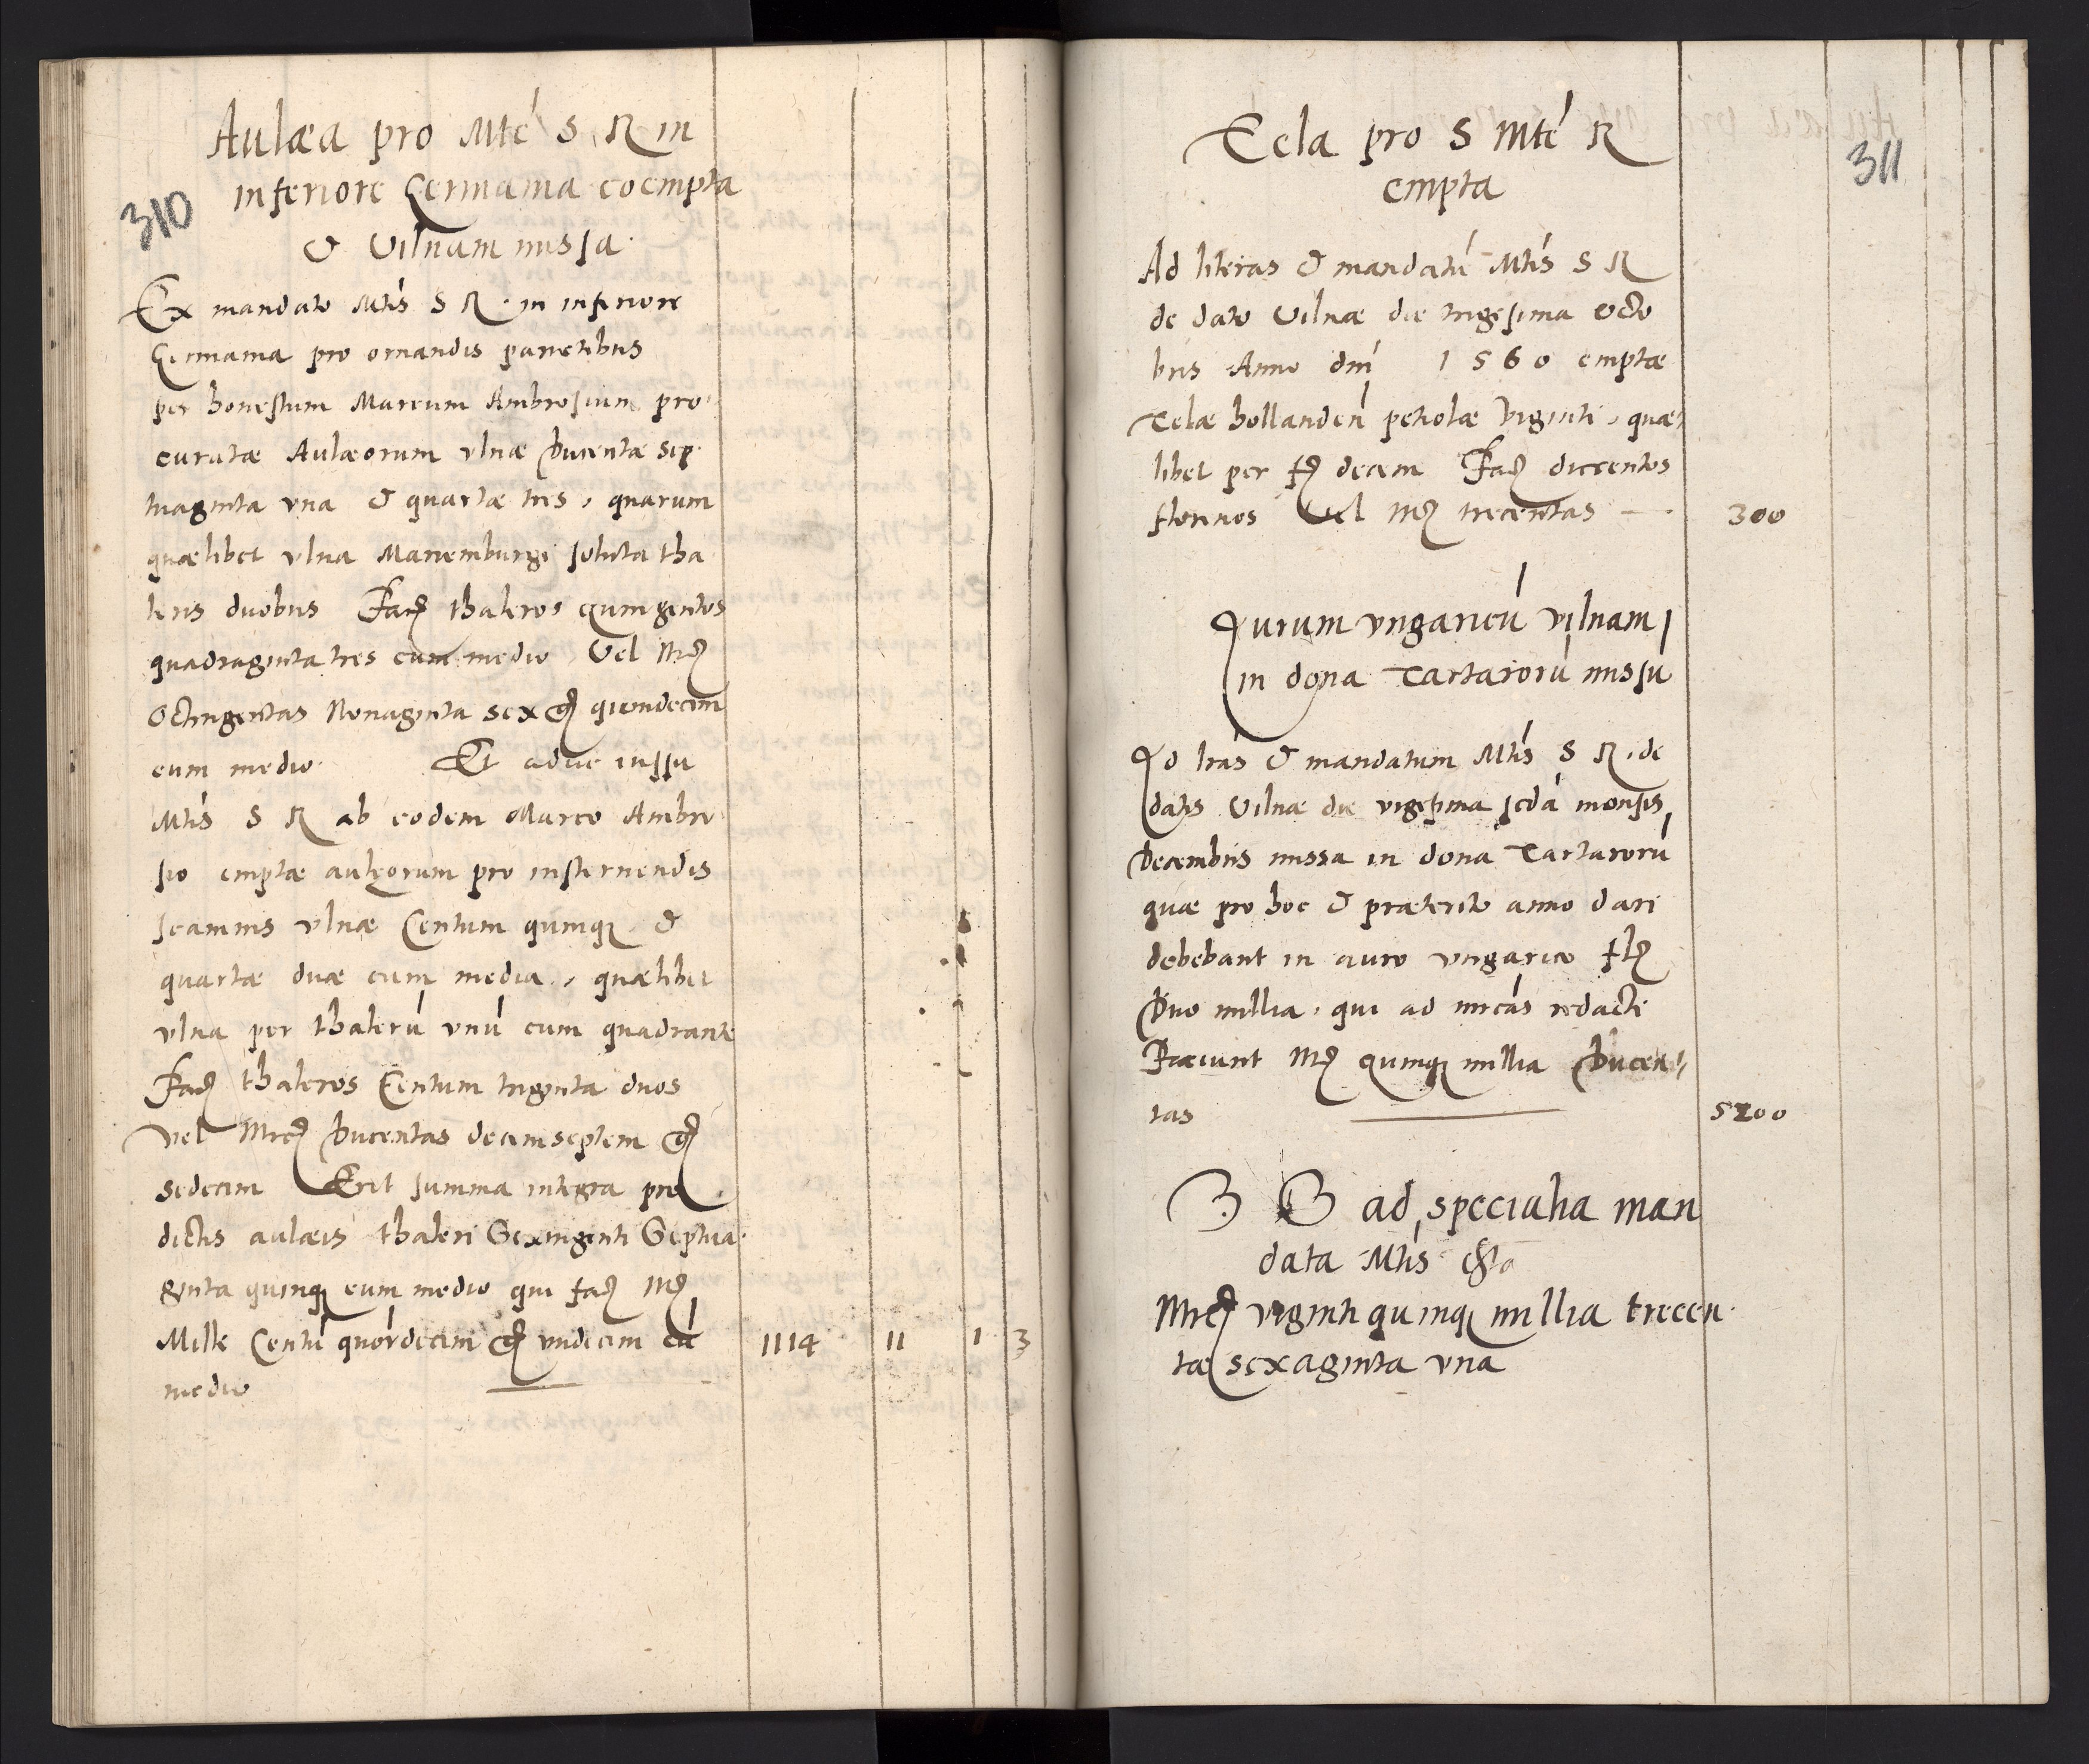 310
Aulæa pro Mté S R in
inferiore Germania coempta
& Vilnam missa.
Ex mandato Mtis S R in inferiore
Germania pro ornandis parietibus
per honestum Marcum Ambrosium pro
curatæ Aulæorum vlnæ Ducentæ sep
tuaginta vna & quartæ tres, quarum
quælibet vlna Mariemburgi soluta tha
leris duobus thaleros quingentos
quadraginta tres cum medio Vel
Octingentas Nonaginta sex quindecim
cum medio Et adhuc iussu
Mtis S R ab eodem Marco Ambro
sio emptæ aulęorum pro insternendis
scamnis vlnæ Centum quinq &
quartæ duæ cum media, quælibet
vlna per thalerú vnú cum quadrante
thaleros Centum triginta duos
vel Ducentas decem septem
sedecim Erit summa integra pre
dictis aulæis thaleri Sexingenti Septua
ginta quinq cum medio qui
Mille Centú quordecim vndecim cú 1114 11 1 3
medio
311
Tela pro S Mté R
empta
Ad literas & mandatú Mtis S R
de dato Vilnæ die trigesima octo
bris Anno dni 1560 emptæ
Telæ hollanden petiolæ Viginti, quæ
libet per decem ducentos
florinos Vel trecentas 300
Aurum vngaricú vilnam
in dona Tartarorú missú
Ad lras & mandatum Mtis S R. de
datis Vilnæ die vigesima scdá mensis
Decembris missa in dona Tartarorú
quæ pro hoc & præterito anno dari
debebant in auro vngarico
Duo millia, qui ad mrcás redacti
Faciunt quinq millia Ducen
tas 5200
ad specialia man
data Mtis
viginti quinq millia trecen
tæ sexaginta vna